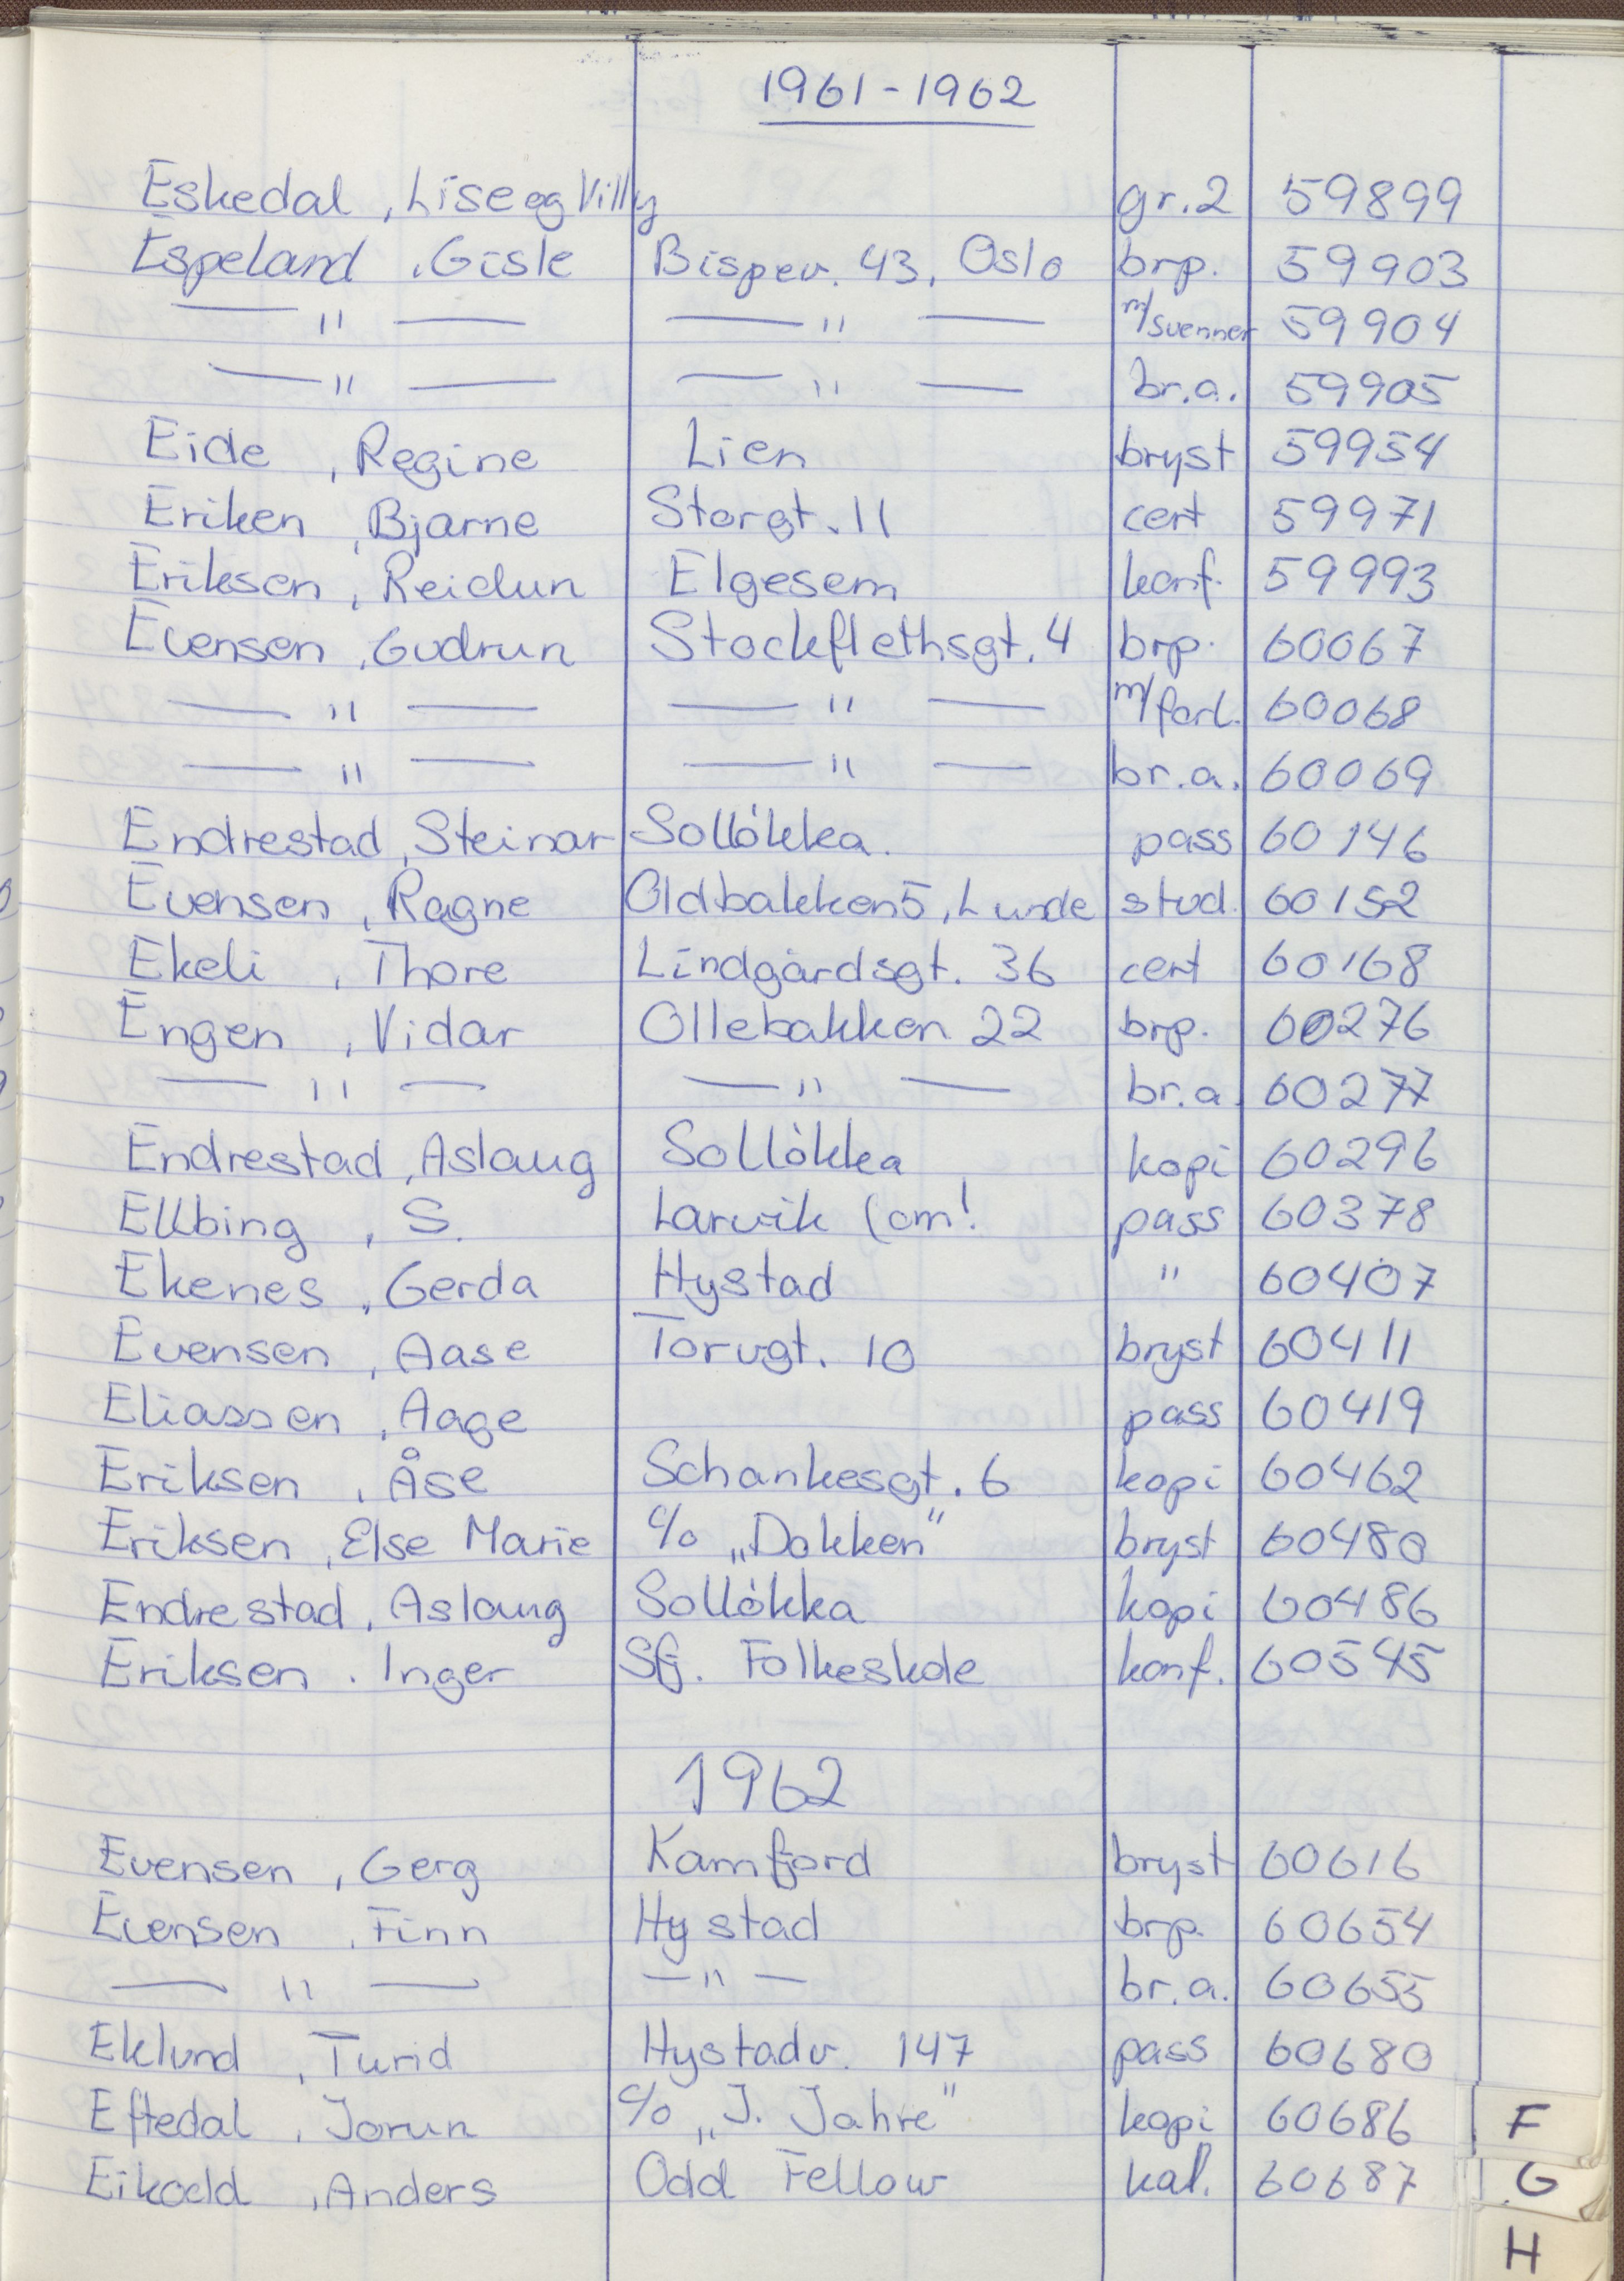 1961-1962
Eskedal, Lise og Villy gr.2 59899
Espeland, Gisle Bispev. 43, Oslo brp. 59903
— " — — " — m/svenner 59904
— " — — " — br.a. 59905
Eide, Regine Lien bryst 59954
Eriken, Bjarne Storgt. 11 cert 59971
Eriksen, Reidun Elgesem konf. 59993
Evensen, Gudrun Stockflethsgt. 4 brp. 60067
— " — — " — m/forl. 60068
— " — — " — br.a. 60069
Endrestad, Steinar Solløkka. pass 60146
Evensen, Ragne Oldbakken 5, Lunde stud. 60152
Ekeli, Thore Lindgårdsgt. 36 cert 60168
Engen, Vidar Ollebakken 22 brp. 60276
— " — — " — br.a. 60277
Endrestad, Aslaug Solløkka kopi 60296
Ellbing, S. Larvik (om! pass 60378
Ekenes, Gerda Hystad " 60407
Evensen, Aase Torvgt. 10 bryst 60411
Eliassen, Aage pass 60419
Eriksen, Åse Schankesgt. 6 kopi 60462
Eriksen, Else Marie c/o „Dokken" bryst 60480
Endrestad, Aslaug Solløkka kopi 60486
Eriksen. Inger Sfj. Folkeskole konf. 60545
1962
Evensen, Gerg Kamfjord bryst 60616
Evensen, Finn Hystad brp. 60654
— " — — " — br.a. 60655
Eklund, Turid Hystadv. 147 pass 60680
Eftedal, Jorun c/o „J. Jahre" kopi 60686
F
Anders Odd Fellow kal. 60687
G
H